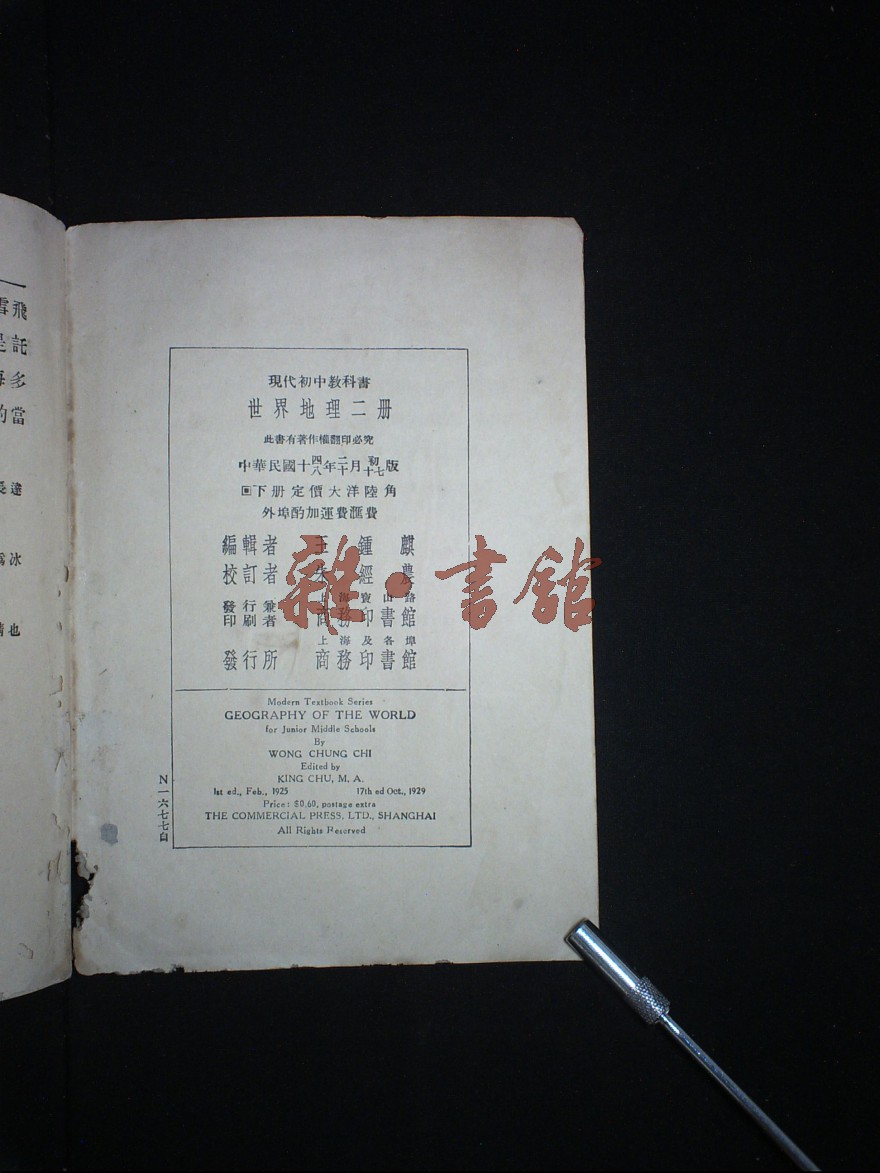 現代初中教科書
世界地理二册
此書有著作權翻印必究
中華民國十四八年二十月初十七版
回下册定價大洋陸角
外埠酌加運費匯費
編輯者 王鍾麒
校訂者 朱經農
發行兼印刷者 上海寶山路 商務印書館
上海及各埠
發行所 商務印書館
雜·書館
Modern Textbook Series
GEOGRAPHY OF THE WORLD
for Junior Middle Schools
By
WONG CHUNG CHI
Edited by
KING CHU, M. A.
1st ed., Feb., 1925 17th ed Oct., 1929
Price: $0.60, postage extra
THE COMMERCIAL PRESS. LTD., SHANGHAI
All Rights Reserved
N一六七七白
飛
託
多
的當
達
冰
也